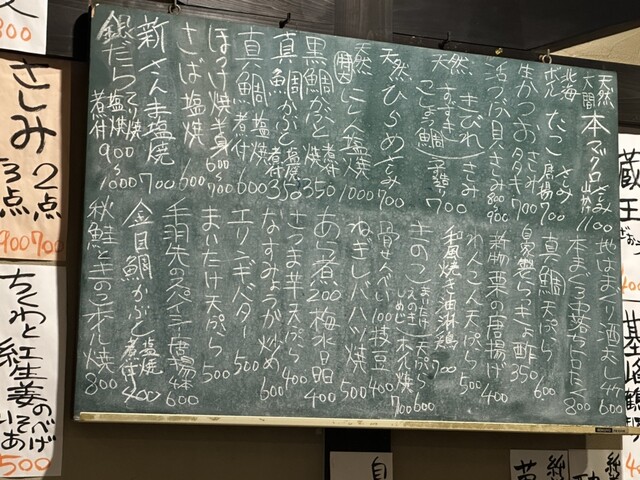 天然 大間 本マグロ さしみ 1100
北海 ボイル たこ さしみ 唐揚 700
生かつお さしみ タタキ 700
活つぶ貝 さしみ 800 900
天然 きびれ さしみ
天然 こしょう鯛 700
天然 ひらめ さしみ 700
天然 塩焼 1000
黒鯛かぶと 塩焼 350
真鯛かぶと 塩焼 煮付 350
真鯛 塩焼 煮付 600
ほっけ焼 半身 600 700
さば塩焼 600
新さんま塩焼 700
銀だら 塩焼 煮付 900 1000
地はまぐり酒むし 600
本まぐろ 800
真鯛天ぷら 600
らっきょ酢 350
新物 栗の唐揚げ 400
れんこん天ぷら 500
和風焼き油淋鶏 700
きのこ まいたけ えのき しめじ 天ぷら 600 ホイル焼 700
骨せんべい 100 枝豆 400
ねぎレバー焼 500
あら煮 200 梅水晶 400
さつま芋天ぷら 400
なすみょうが炒め 600
エリンギバター 500
まいたけ天ぷら 500
手羽先のスペシャル唐揚 4本 600
金目鯛かぶと 塩焼 煮付 400
秋鮭ときのこホイル焼 800
さしみ 2点 700 3点 900
ちくわと紅生姜のいそべあげ 500
蔵王
800